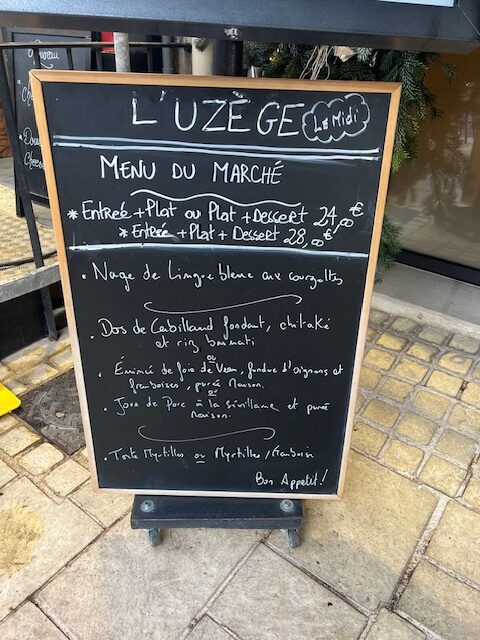 L'UZÈGE Le Midi
MENU DU MARCHÉ
* Entreé + Plat ou Plat + Dessert 24,00€
* Entreé + Plat + Dessert 28,00€
• Nage de Lingue bleue aux courgettes
• Dos de Cabillaud fondant, chitaké
et riz basmati
ou
• Émincé de foie de Veau, fondue d'oignons et
framboises, purée Maison.
ou
• Joue de Porc à la sévillane et purée
maison.
• Tarte Myrtilles ou Myrtilles/Framboise
Bon Appetit!